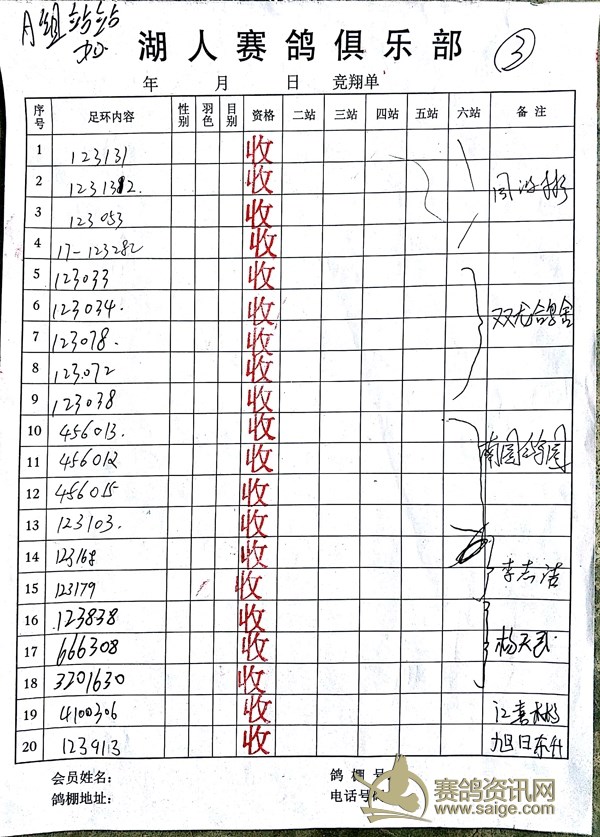 A组站站
湖人赛鸽俱乐部
3
年 月 日 竞翔单
序号 足环内容 性别 羽色 目别 资格 二站 三站 四站 五站 六站 备注
1 123131 收
2 收
3 123053 收
4 17-123282 收
5 123033 收
6 123034. 收 双龙鸽舍
7 123078. 收
8 123072 收
9 123038 收
10 456013. 收
11 456012 收 南园
12 456015 收
13 123103. 收
14 123168 收 李志洁
15 123179 收
16 .123838 收
17 666308 收 杨天武
18 3201630 收
19 4100306 收
20 123913 收 旭日东升
会员姓名: 鸽棚号
鸽棚地址: 电话号
赛鸽资讯网
www.saige.com